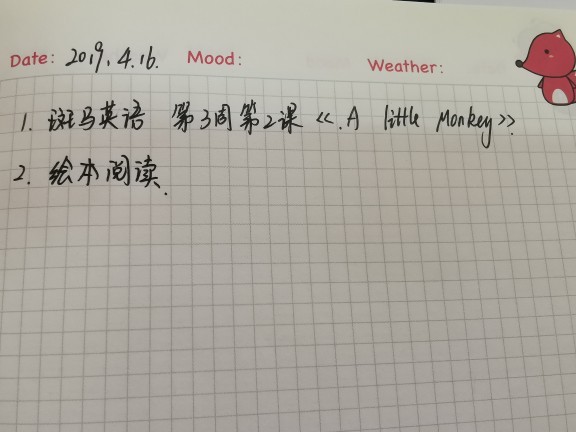 Date: 2019.4.16. Mood: Weather:
1. 斑马英语 第3周第2课 《A little Monkey》.
2. 绘本阅读.